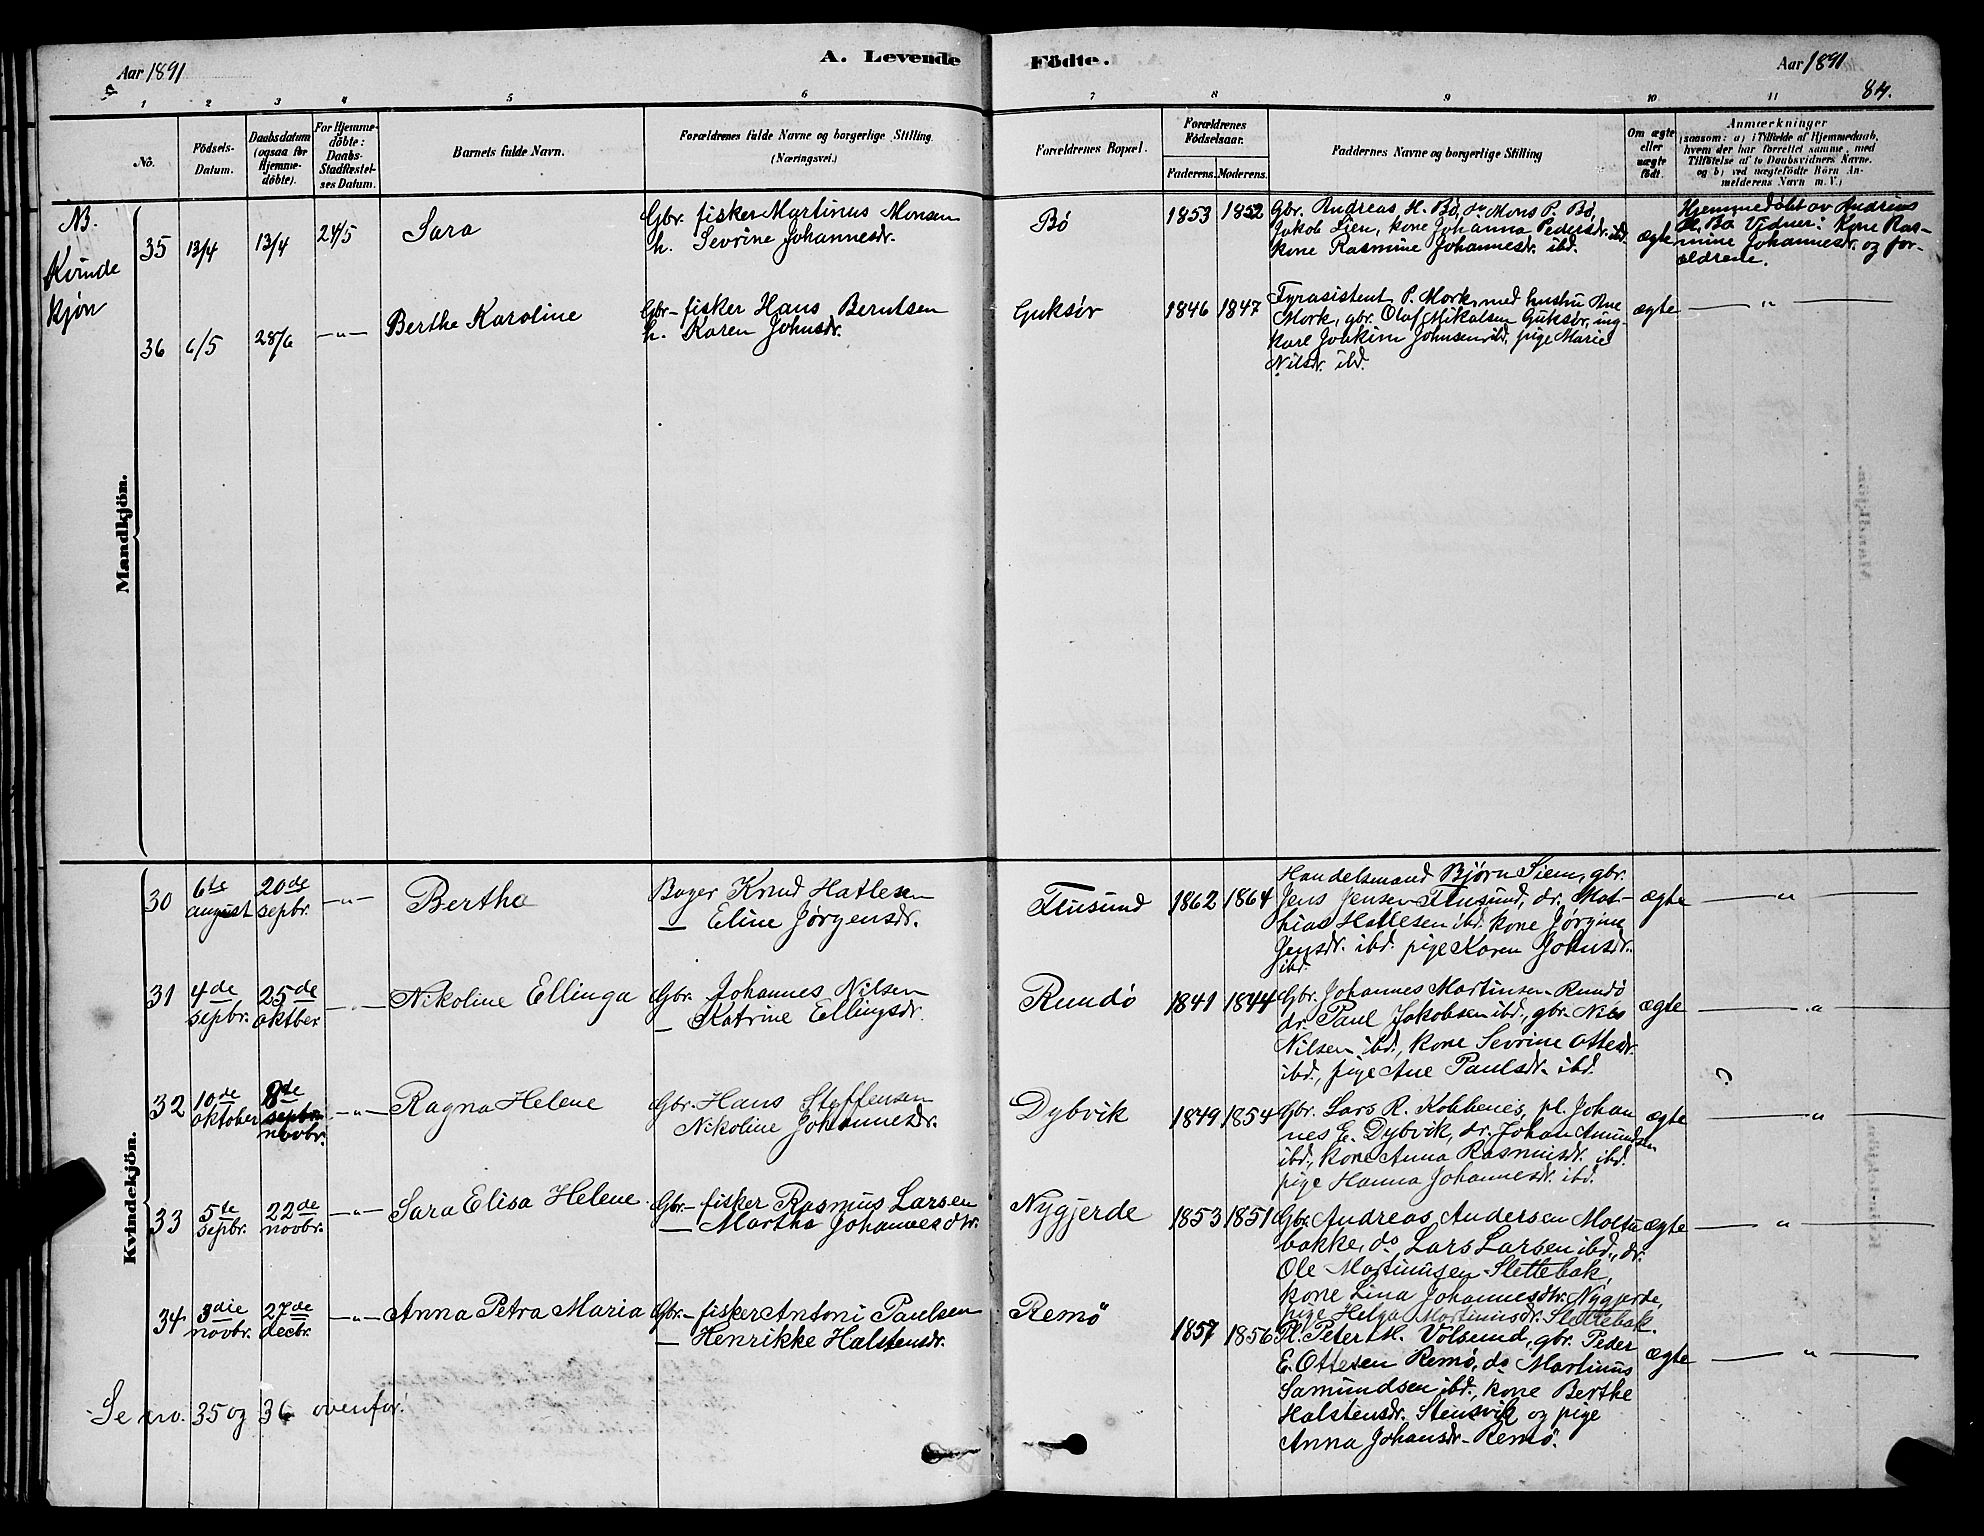 A. Levende Födte.
Aar 1891
Aar 1891
84.
1 2 3 4 5 6 7 8 9 10 11
No.
Födsels-
Datum.
Daabsdatum
(ogsaa for
Hjemme-
döbte).
For Hjemme-
döbte:
Daabs-
Stadfæstel-
ses Datum.
Barnets fulde Navn.
Forældrenes fulde Navne og borgerlige Stilling
(Næringsvei.)
Forældrenes Bopæl.
Forældrenes
Födselsaar.
Faderens. Moderens.
Faddernes Navne og borgerlige Stilling
Om ægte
eller
uægte
födt.
Anmærkninger
(saasom: a) i Tilfælde af Hjemmedaab,
hvem der har forrettet samme, med
Tilföielse af to Daabsvidners Navne.
og b) ved uægtefödte Börn An-
melderens Navn m. V.)
NB.
Kvinde
kjøn
Mandkjön.
35 13/4 13/4 24/5 Sara
Gbr. fisker Martinus Monsen
h. Sevrine Johannesdr.
Bø 1853 1852
Gbr. Andreas H. Bø, do Mons P. Bø,
Jakob Lien, kone Johanna Pedersdr. ibd.
kone Rasmine Johannesdr. ibd.
ægte
Hjemmedøbt av Andreas
H. Bø Vidner: Kone Ras-
mine Johannesdr. og for-
ældrene.
36 6/5 28/6 —"— Berthe Karoline
Gbr- fisker Hans Berntsen
h. Karen Johnsdr.
Guksør 1846 1847
Fyrasistent P. Mork, med hustru Ane
Mork, gbr. Olaf Mikalsen Guksør, ung-
karl Joakim Johnsen ibd, pige Marie
Nilsdr. ibd.
ægte —"—
Kvindekjön.
30 6te august 20de sepbr. —"— Bertha
Bager Knud Hatlesen
— Eline Jørgensdr.
Flusund 1862 1864
Handelsmand Bjørn Siem, gbr.
Jens Jensen Flusund, dr. Mat-
hias Hatlesen ibd. kone Jørgine
Jensdr. ibd. pige Karen Johnsdr.
ibd.
ægte —"—
31 4de sepbr. 25de oktber —"— Nikoline Ellinga
Gbr. Johannes Nilsen
— Katrine Ellingsdr.
Rundø 1841 1844
Gbr. Johannes Martinsen Rundø
dr. Paul Jakobsen ibd., gbr. Nils
Nilsen ibd., kone Sevrine Ottesdr.
ibd., pige Ane Paulsdr. ibd.
ægte —"—
32 10de oktober 8de sepbr. novbr. —"— Ragna Helene
Gbr. Hans Steffensen
Nikoline Johannesdr.
Dybvik 1849 1854
Gbr. Lars R. Kobbenes, pl. Johan
nes E. Dybvik, dr. Johan Amundsen
ibd., kone Anna Rasmusdr. ibd.
pige Hanna Johannesdr. ibd.
ægte —"—
33 5te sepbr. 22de novbr. —"— Sara Elisa Helene
Gbr- fisker Rasmus Larsen
— Martha Johannesdtr.
Nygjerde 1853 1851
Gbr. Andreas Andersen Moltu
bakke, do Lars Larsen ibd., dr.
Ole Martinusen Slettebak,
kone Lina Johannesdtr. Nygjerde,
pige Helga Martinusdr. Slettebak.
ægte —"—
34 3die novbr. 27de decbr. —"— Anna Petra Maria
Gbr- fisker Antoni Paulsen
— Henrikke Halstensdr.
Remø 1857 1856
Pl. Peter M. Volsund, gbr. Peder
E. Ottesen Remø, do Martinus
Samundsen ibd., kone Berthe
Halstensdr. Stensvik og pige
Anna Johansdr- Remø.
ægte —"—
Se no. 35 og 36 ovenfor.